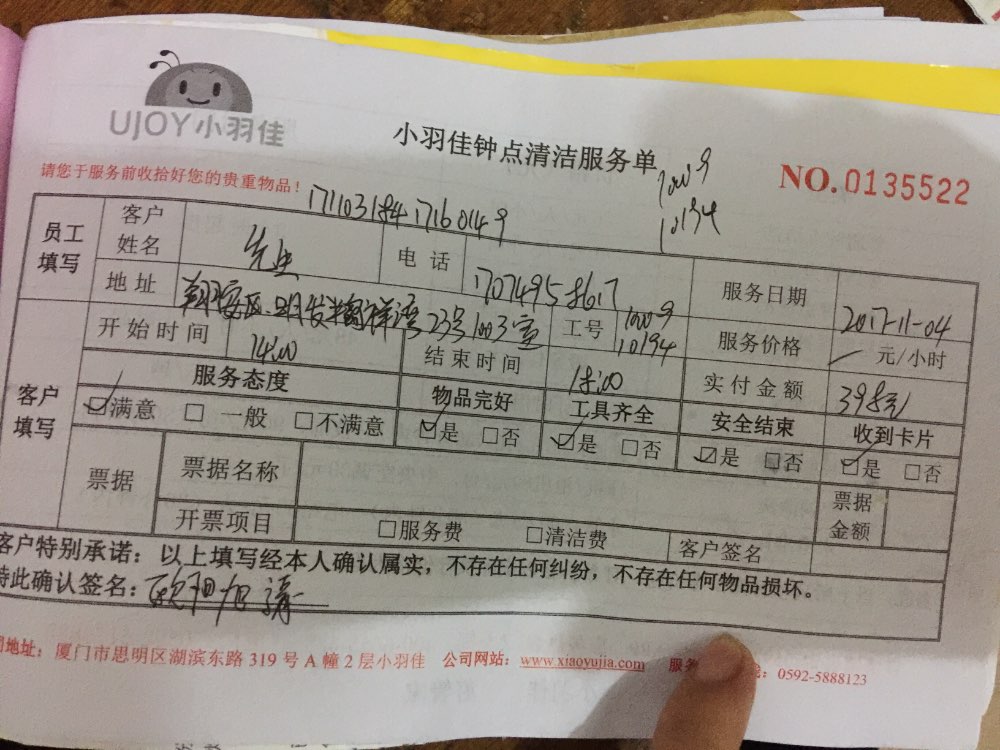 UJOY小羽佳
小羽佳钟点清洁服务单
NO.0135522
请您于服务前收拾好您的贵重物品！
10009
10194
17110318417160149
员工填写 客户姓名 先生 电话 17074958617 服务日期 2017-11-04
地址 翔安区 明发 祥湾23号1003室 工号 10009 10194 服务价格 元/小时
开始时间 14:00 结束时间 18:00 实付金额 398元
客户填写 服务态度 物品完好 工具齐全 安全结束 收到卡片
☑满意 □一般 □不满意 ☑是 □否 ☑是 □否 ☑是 □否 ☑是 □否
票据 票据名称 票据金额
开票项目 □服务费 □清洁费 客户签名
客户特别承诺：以上填写经本人确认属实，不存在任何纠纷，不存在任何物品损坏。
特此确认签名：欧阳
地址：厦门市思明区湖滨东路 319 号 A 幢 2 层小羽佳 公司网站：www.xiaoyujia.com 服务 ：0592-5888123